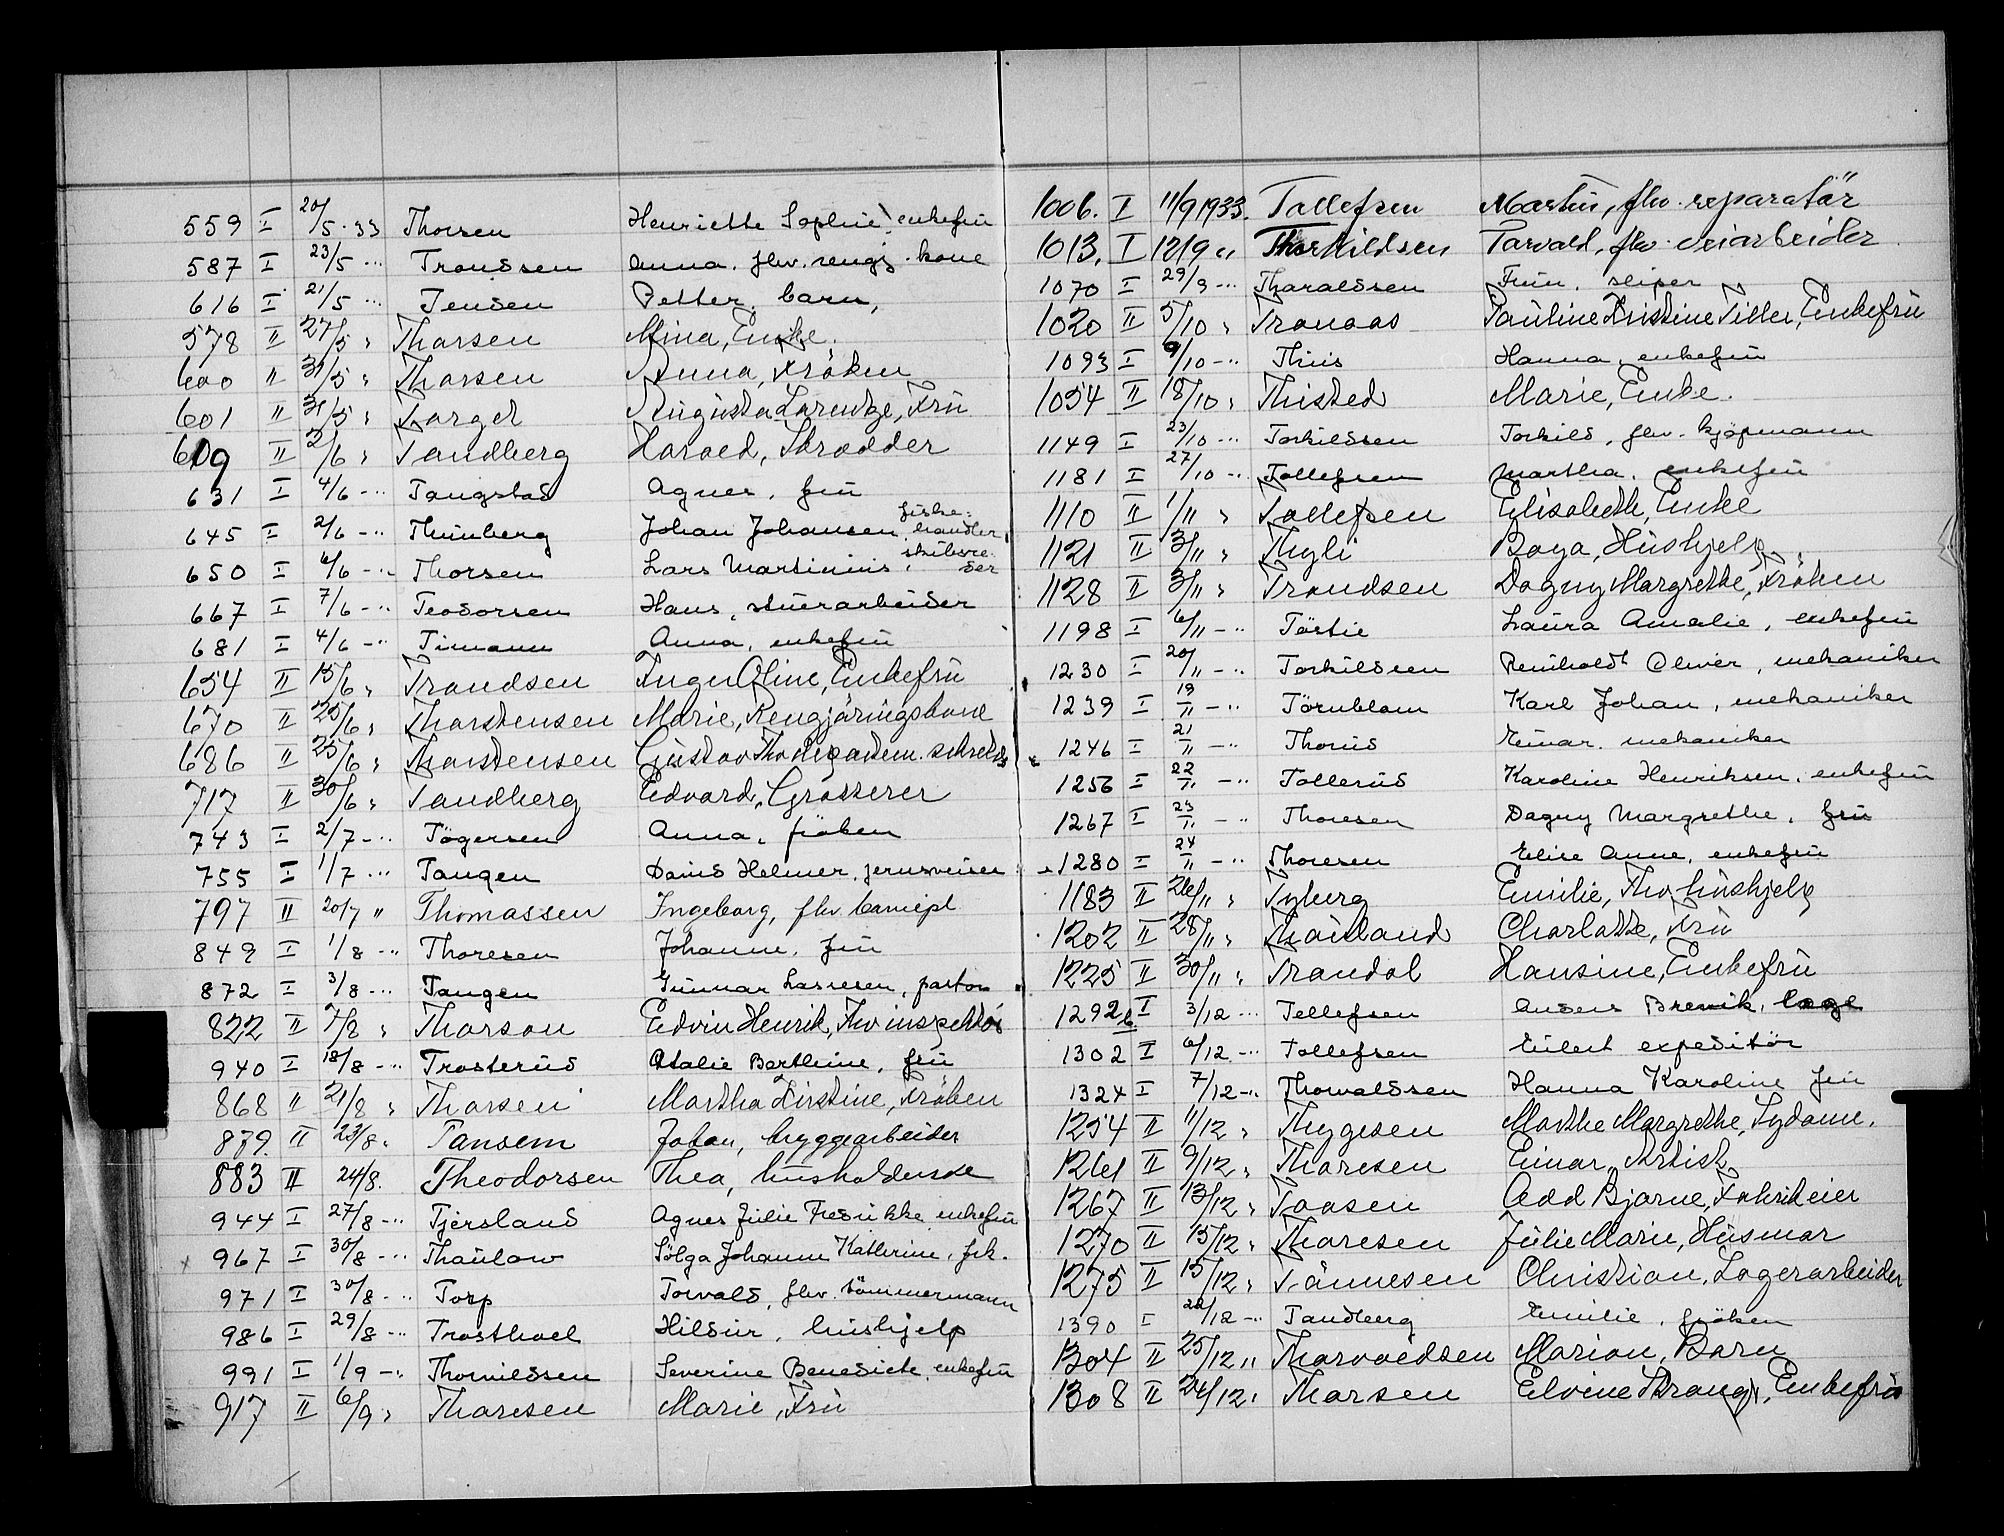 559 I 20/5-33 Thorsen Henriette Sophie, enkefru
587 I 23/5 -" Trondsen Anna, fhv. rengj. kone
616 I 21/5 -" Jensen Petter, barn,
578 II 27/5 " Thorsen Mina, Enke.
600 II 31/5 " Thorsen Anna, Frøken
601 II 31/5 " Torget Augusta Lorentze, Fru
609 II 2/6 " Tandberg Harald, Skrædder
631 I 4/6 -" Tangstad Agnes, fru
645 I 2/6 -" Thunberg Johan Johansen, fiskehandler
650 I 6/6 -" Thorsen Lars Martinius,
667 I 7/6 -" Teodorsen Hans, stuerarbeider
681 I 4/6 -" Timann Anna, enkefru
654 II 15/6 " Trondsen Inger Oline, Enkefru
670 II 25/6 " Thorstensen Marie, Rengjøringskone
686 II 25/6 " Thorstensen Gustav Fhv departem. sekretær
717 II 30/6 " Tandberg Edvard, Grosserer
743 I 2/7 -" Tøgersen Anna, frøken
755 I 1/7 -" Tangen David Helmer, jernsveiser
797 II 20/7 " Thomassen Ingeborg, fhv. barnepl
849 I 1/8 -" Thoresen Johanne, fru
872 I 3/8 -" Tangen Gunnar Lassesen, pastor
822 II 7/8 " Thorson Edvin Henrik, Fhv inspektør
940 I 18/8 -" Trosterud Otalie Berthine, fru
868 II 21/8 " Thorsen Martha Kirstine, Frøken
879. II 23/8 " Tansem Johan, bryggearbeider
883 II 24/8. Theodorsen Thea, husholderske
944 I 27/8 -" Tjersland Agnes Julie Fredrikke enkefru
967 I 30/8 -" Thaulow Sølga Johanne Kathrine, frk.
971 I 30/8 -" Torp Torvald, fhv. tømmermann
986 I 29/8 -" Trosthoel Hildur, hushjelp
991 I 1/9 -" Thorvildsen Severine Benedicte, enkefru
917 II 6/9 " Thoresen Marie, Fru
1006. I 11/9 1933. Tollefsen Martin, fhv. reparatør
1013. I 12/9 " Thorkildsen Torvald, fhv. veiarbeider
1070 I 29/9 -" Tharaldsen Finn, sliper
1020 II 5/10 " Tranaas Pauline Kristine Tiller, Enkefru
1093 I 9/10 -" Thiis Hanna, enkefru
1054 II 18/10 " Thisted Marie, Enke.
1149 I 23/10 -" Torkildsen Torkild, fhv. kjøpmann
1181 I 27/10 -" Tollefsen Martha, enkefru
1110 II 1/11 " Tollefsen Elisabeth, Enke
1121 II 3/11 " Thyli Boya, Hushjelp
1128 II 3/11 " Trondsen Dagny Margrethe, Frøken
1198 I 6/11 -" Tørtie Laura Amalie, enkefru
1230 I 20/11 -" Torkildsen Reinholdt Oliver, mekaniker
1239 I 19/11 -" Törnblom Karl Johan, mekaniker
1246 I 21/11 -" Thorud Einar, mekaniker
1256 I 22/11 -" Tollerud Karoline Henriksen, enkefru
1267 I 23/11 -" Thoresen Dagny Margrethe, fru
1280 I 24/11 -" Thoresen Elise Anne, enkefru
1183 II 26/11 " Tyberg Emilie, Fhv hushjelp
1202 II 28/11 " Thauland Charlotte, Fru
1225 II 30/11 " Trandal Hansine, Enkefru
1292b I 3/12 -" Tellefsen Anders Brevik, læge
1302 I 6/12 -" Tollefsen Eilert expeditør
1324 I 7/12 -" Thorvaldsen Hanna Karoline fru
1254 II 11/12 " Thygesen Marthe Margrethe, Sydame.
1261 II 9/12 " Thoresen Einar, Artist
1267 II 13/12 " Taasen Odd Bjarne, Fabrikeier
1270 II 15/12 " Thoresen Julie Marie, Husmor
1275 II 15/12 " Tønnesen Christian, Lagerarbeider
1390 I 22/12 -" Tandberg Emilie, frøken
1304 II 25/12 " Thorvaldsen Marion, Barn
1308 II 24/12 " Thorsen Elvine Strange, Enkefru